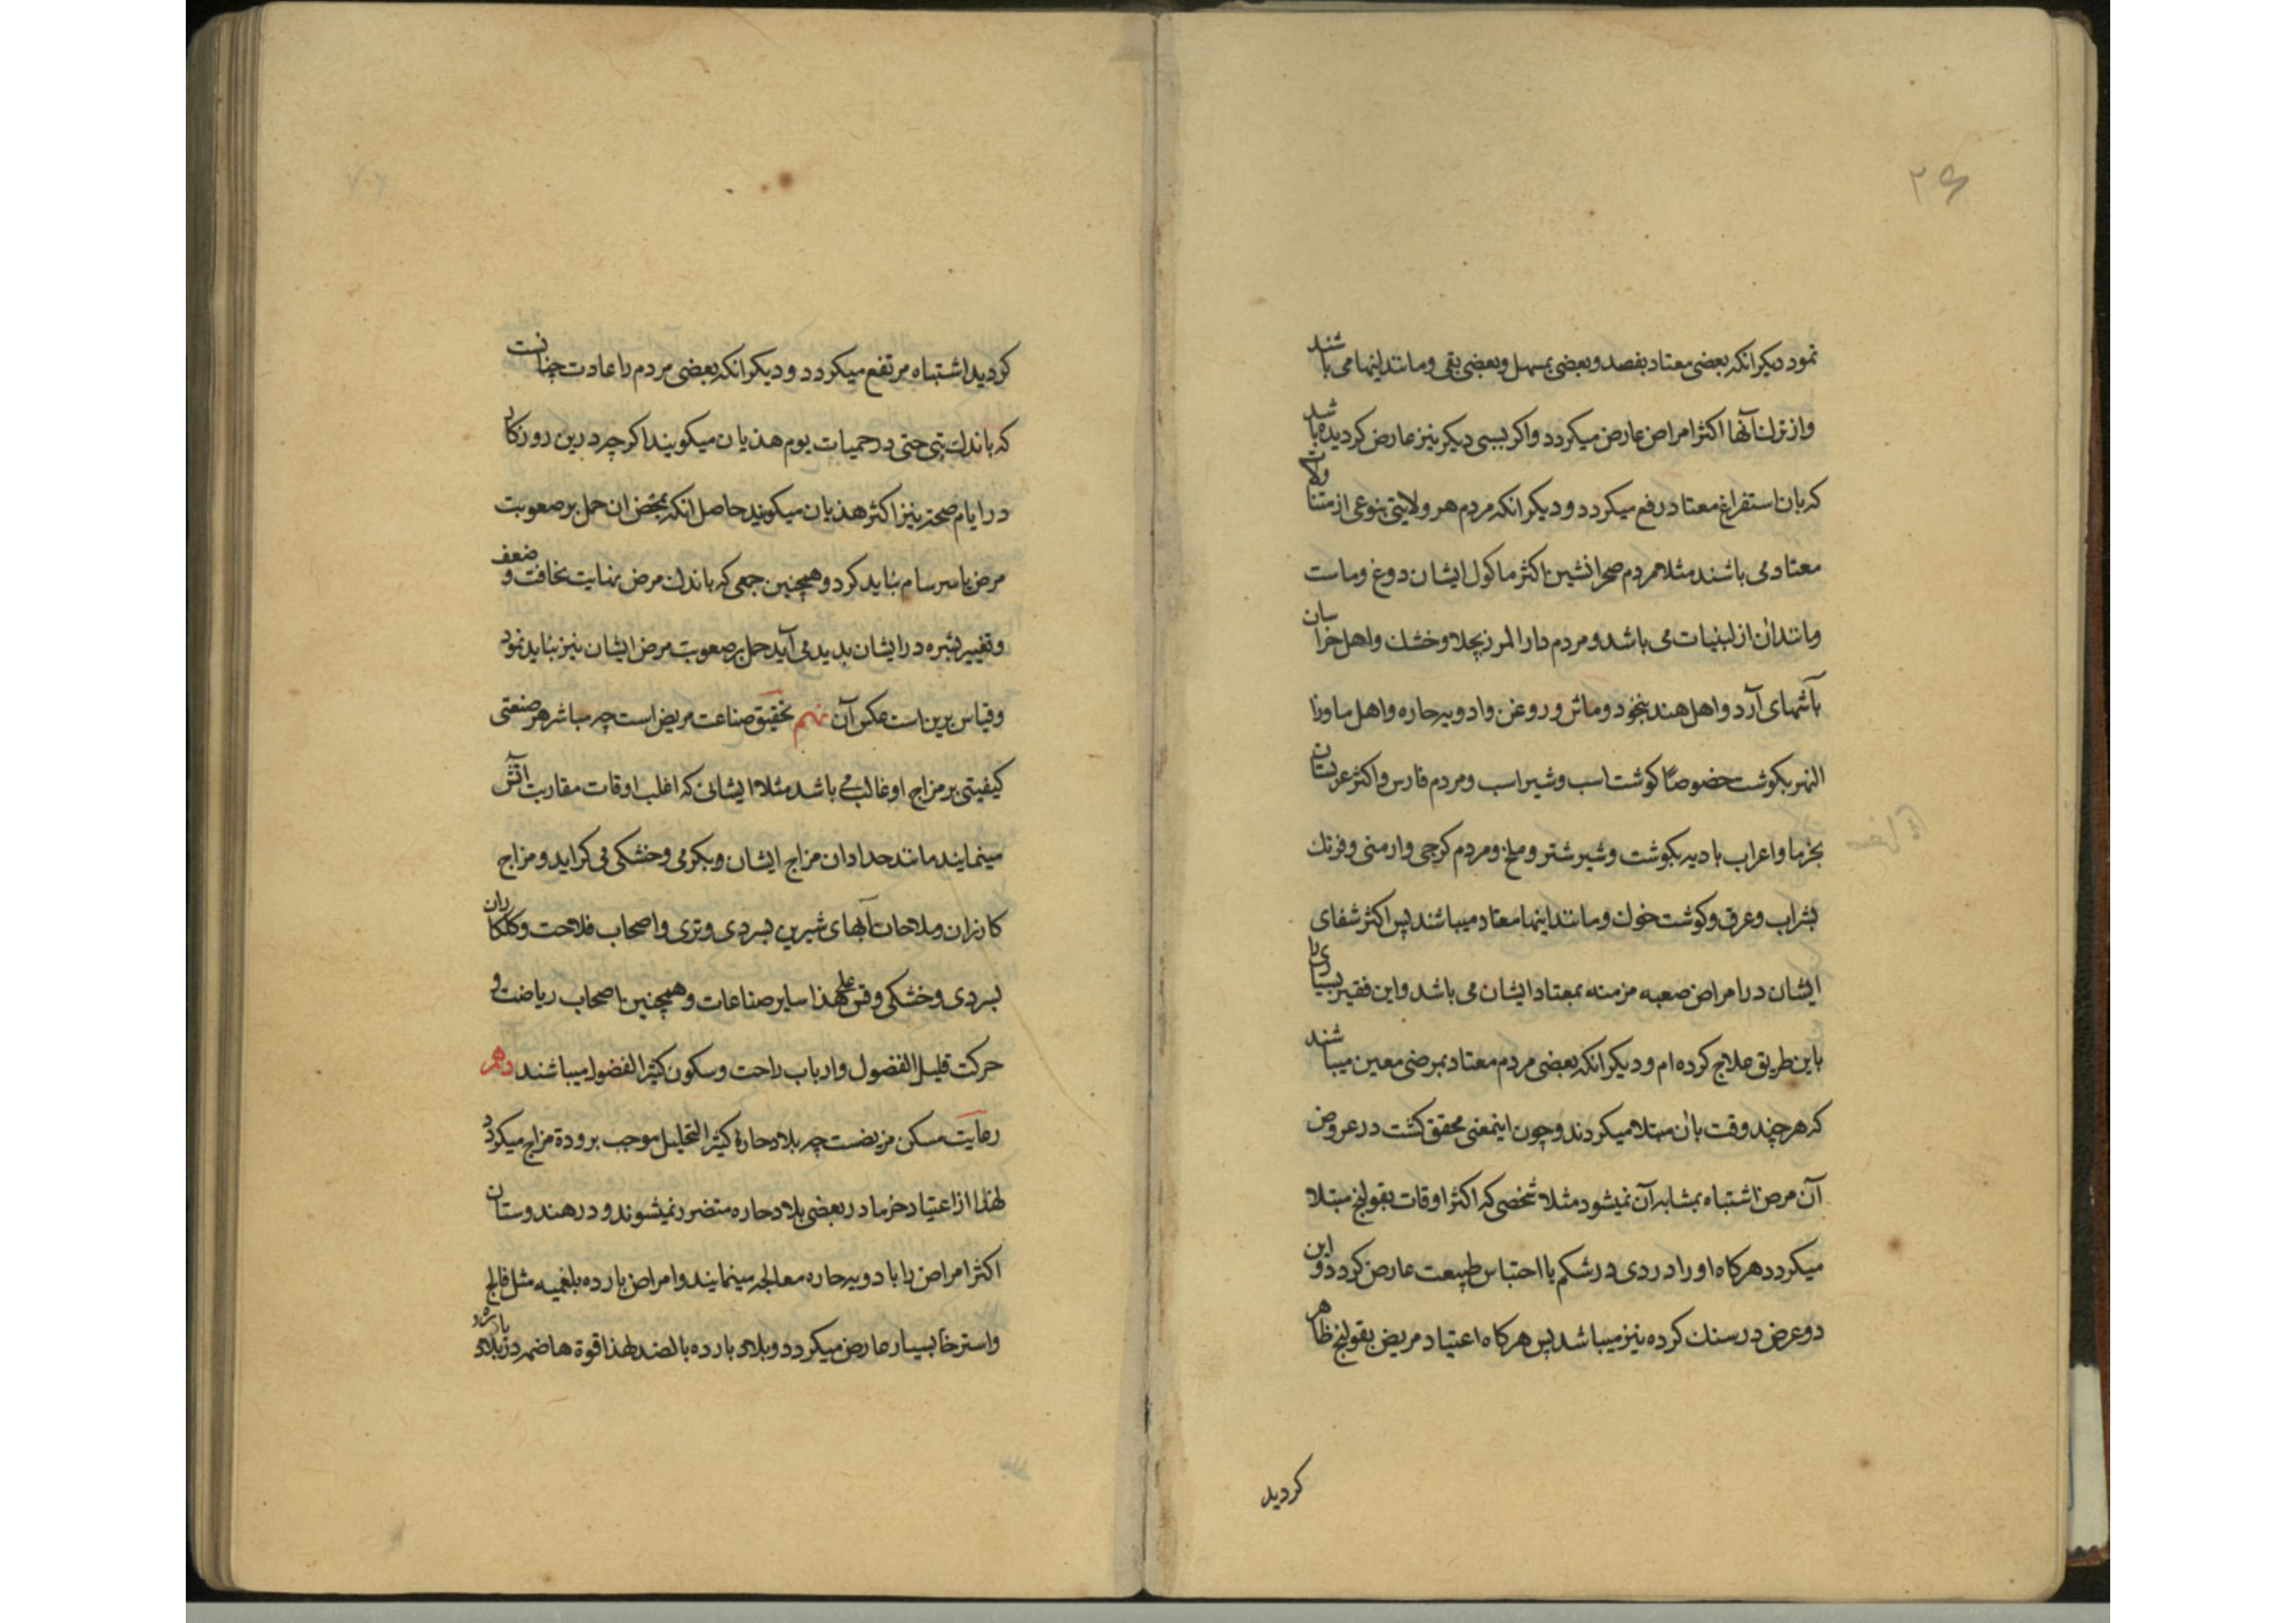 ۲۶
نمود دیکر انکه بعضی معتاد بفصد و بعضی بمسهل و بعضی بقی و مانند اینها می باشند
و از ترک آنها اکثر امراض عارض میکردد و اکر بسببی دیکر نیز عارض کردیده باشد
که بان استفراغ معتاد رفع میکردد و دیکر انکه مردم هر ولایتی بنوعی از متناولات
معتاد می باشند مثلا مردم صحرانشین اکثر ماکول ایشان دوغ و ماست
و مانند ان از لبنیات می باشد و مردم دار المرز بچلاو خشک و اهل خراسان
بآشهای آرد و اهل هند بنخود و ماش و روغن و ادویه حاره و اهل ماورا
النهر بکوشت خصوصا کوشت اسب و شیر اسب و مردم فارس و اکثر عربستان
بخرما و اعراب بادیه بکوشت و شیر شتر و ملخ و مردم کرجی و ارمنی و فرنک
بشراب و عرق و کوشت خوک و مانند اینها معتاد میباشند پس اکثر شفای
ایشان در امراض صعبه مزمنه بمعتاد ایشان می باشد و این فقیر بسیاری را
باین طریق علاج کرده ام و دیکر انکه بعضی مردم معتاد بمرضی معین میباشند
که هر چند وقت بان مبتلا میکردند و چون اینمعنی محقق کشت در عروض
آن مرض اشتباه بمشابه آن نمیشود مثلا شخصی که اکثر اوقات بقولنج مبتلا
میکردد هرکاه او را دردی در شکم با احتباس طبیعت عارض کردد و این
دو عرض در سنک کرده نیز میباشد پس هرکاه اعتیاد مریض بقولنج ظاهر
کردید
کردید اشتباه مرتفع میکردد و دیکر انکه بعضی مردم را عادت چنانست
که باندک تبی حتی در حمیات یوم هذیان میکویند اکر چه درین روزکار
در ایام صحت نیز اکثر هذیان میکویند حاصل انکه بمحض ان حمل بر صعوبت
مرض یا سرسام نباید کرد و همچنین جمعی که باندک مرض نهایت نخافت و ضعف
و تغییر بشره در ایشان پدید می آید حمل بر صعوبت مرض ایشان نیز نباید نمود
و قیاس برین است عکس آن نهم تحقیق صناعت مریض است چه مباشر هر صنعتی
کیفیتی بر مزاج او غالب می باشد مثلا ایشانی که اغلب اوقات مقاربت اتش
مینمایند مانند حدادان مزاج ایشان و بکرمی و خشکی می کراید و مزاج
کازران و ملاحان آبهای شیرین بسردی و تری و اصحاب فلاحت و کلکاران
بسردی و خشکی و قس علی هذا سایر صناعات و همچنین اصحاب ریاضت و
حرکت قلیل الفضول و ارباب راحت و سکون کثیر الفضول میباشند دهم
رعایت مسکن مریضست چه بلاد حاره کثیر التحلیل موجب برودة مزاج میکردد
لهذا از اعتیاد خرما در بعضی بلاد حاره متضرر نمیشوند و در هندوستان
اکثر امراض را با دویه حاره معالجه مینمایند و امراض بارده بلغمیه مثل فالج
و استرخا بسیار عارض میکردد و بلاد بارده بالضد لهذا قوة هاضمه در بلاد بارده